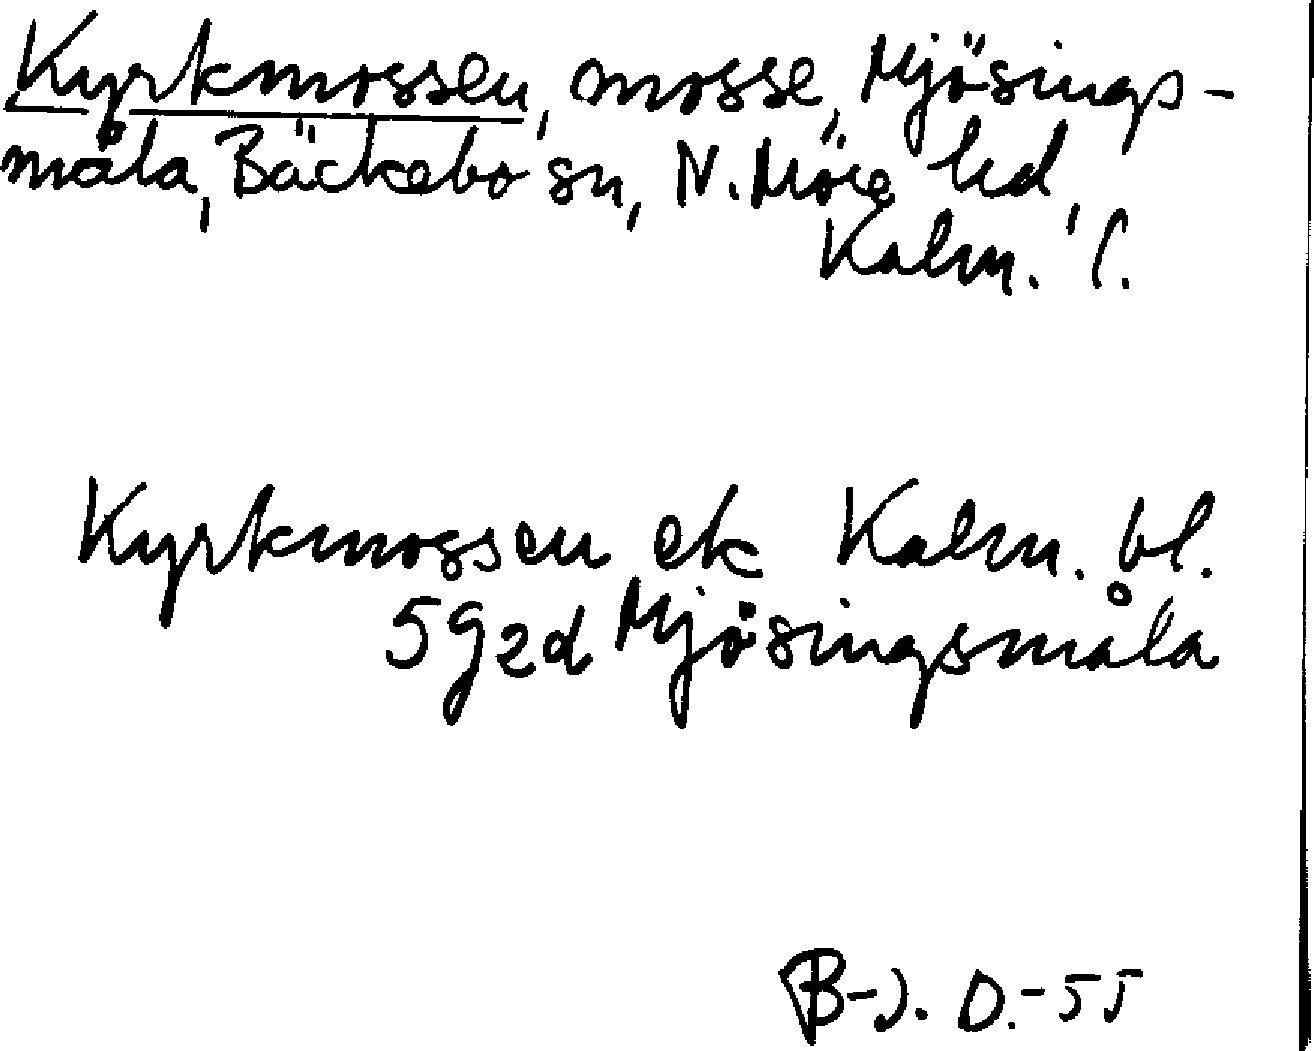 Kyrkmossen, mosse, Mjösings-
måla, Bäckebo sn, N. Möre hd,
Kalm. l.
Kyrkmossen ek Kalm. bl.
5g2d Mjösingsmåla
B-J. D.-55